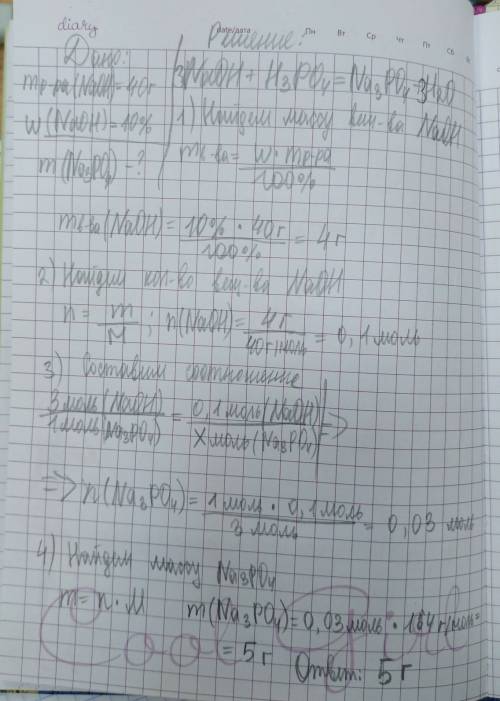 diary
date/дата Пн Вт Ср Чт Пт Сб
Дано: Решение:
mр-ра(NaOH)=40г 3NaOH + H3PO4 = Na3PO4 + 3H2O
w(NaOH)=10% 1) Найдем массу вещ-ва NaOH
m(Na3PO4)=? mв-ва = w · mр-ра / 100%
mв-ва(NaOH) = 10% · 40г / 100% = 4г
2) Найдем кол-во вещ-ва NaOH
n = m / M ; n(NaOH) = 4г / 40г/моль = 0,1 моль
3) Составим соотношение
3 моль(NaOH) / 1 моль(Na3PO4) = 0,1 моль(NaOH) / X моль(Na3PO4) =>
=> n(Na3PO4) = 1 моль · 0,1 моль / 3 моль = 0,03 моль
4) Найдем массу Na3PO4
m = n · M m(Na3PO4) = 0,03 моль · 164 г/моль =
= 5 г Ответ: 5 г